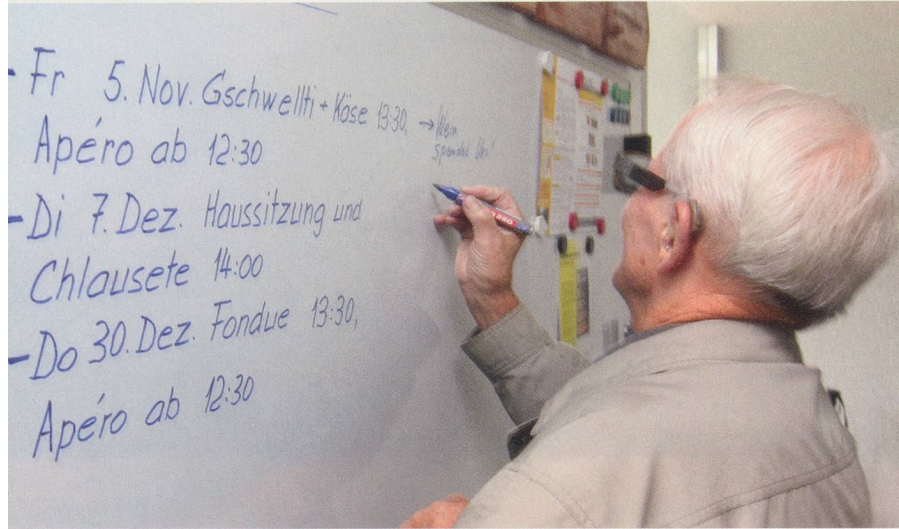 - Fr 5. Nov. Gschwellti + Käse 13:30, → Wein
Apéro ab 12:30
- Di 7. Dez. Haussitzung und
Chlausete 14:00
- Do 30. Dez. Fondue 13:30,
Apéro ab 12:30